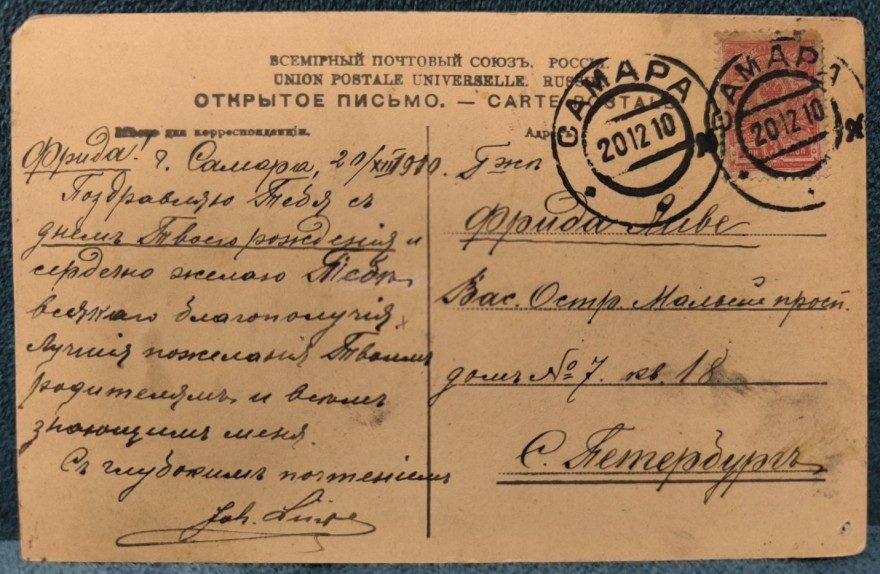 ВСЕМІРНЫЙ ПОЧТОВЫЙ СОЮЗЪ. РОССІЯ.
UNION POSTALE UNIVERSELLE. RUSSIE
ОТКРЫТОЕ ПИСЬМО. — CARTE POSTALE
Мѣсто для корреспонденціи.
Фрида! г. Самара, 20/XII 1910.
Поздравляю Тебя съ
днемъ Твоего рожденія и
сердечно желаю Тебѣ
всякаго благополучія
Лучшія пожеланія Твоимъ
родителямъ и всѣмъ
знающимъ меня.
Съ глубокимъ почтеніемъ
Joh.
Адр
Гжѣ
Фрида
Вас. Остр. Малый просп.
домъ № 7. кв. 18
С. Петербургъ
САМАРА
20 12 10
САМАРА
20 12 10